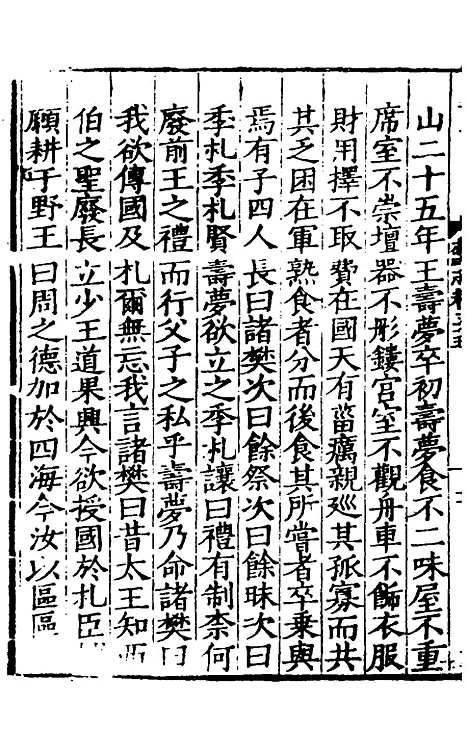 山二十五年王壽夢卒初壽夢食不二味屋不重
席室不崇壇器不彤鏤宮室不觀舟車不飾衣服
財用擇不取費在國天有菑癘親廵其孤寡而共
其乏困在軍熟食者分而後食其所嘗者卒乗與
焉有子四人長曰諸樊次曰餘祭次曰餘昧次曰
季札季札賢壽夢欲立之季札讓曰禮有制柰何
廢前王之禮而行父子之私乎壽夢乃命諸樊曰
我欲傳國及札爾無忘我言諸樊曰昔太王知西
伯之聖廢長立少王道果興今欲授國於札臣
願耕于野王曰周之德加於四海今汝以區區